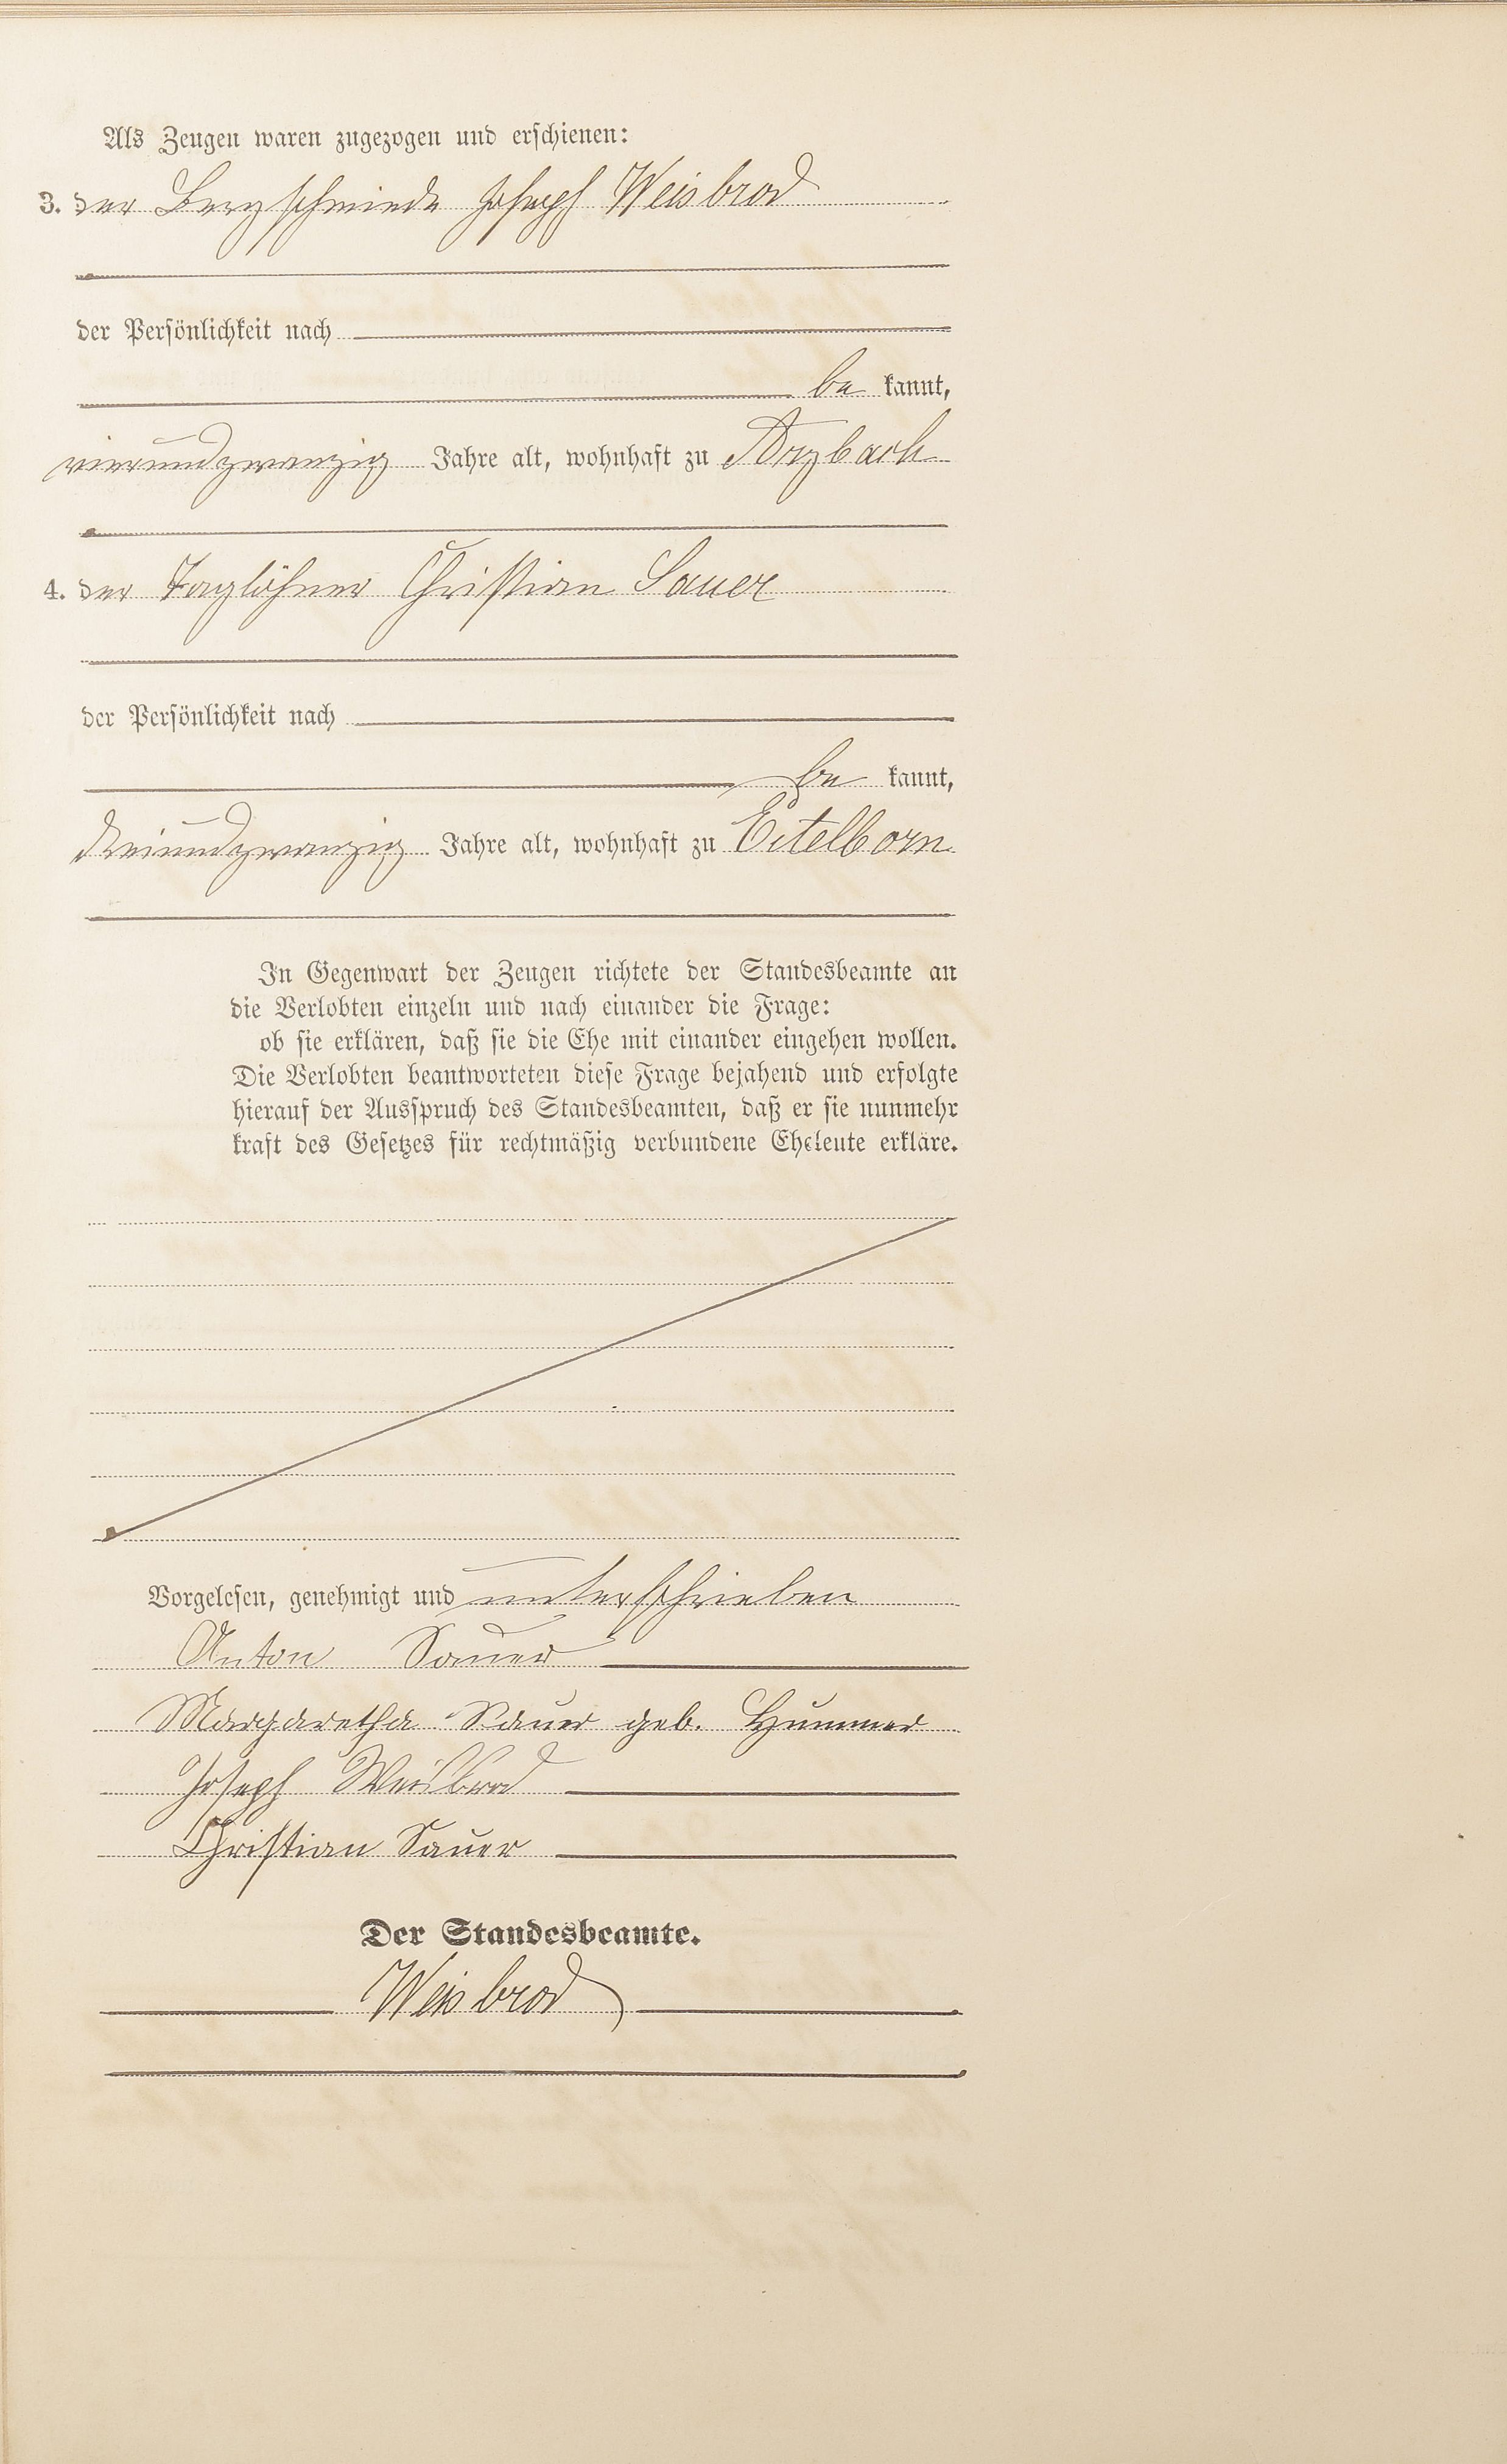 Als Zeugen waren zugezogen und erschienen:
3. der Bergschmiede Joseph Weisbrod
der Persönlichkeit nach
be kannt,
vierundzwanzig Jahre alt, wohnhaft zu Arzbach
4. der Taglöhner Christian Sauer
der Persönlichkeit nach
be kannt,
dreiundzwanzig Jahre alt, wohnhaft zu Eitelborn
In Gegenwart der Zeugen richtete der Standesbeamte an
die Verlobten einzeln und nach einander die Frage:
ob sie erklären, daß sie die Ehe mit einander eingehen wollen.
Die Verlobten beantworteten diese Frage bejahend und erfolgte
hierauf der Ausspruch des Standesbeamten, daß er sie nunmehr
kraft des Gesetzes für rechtmäßig verbundene Eheleute erkläre.
Vorgelesen, genehmigt und unterschrieben
Anton Sauer
Margaretha Sauer geb. Hummer
Joseph Weisbrod
Christian Sauer
Der Standesbeamte.
Weisbrod